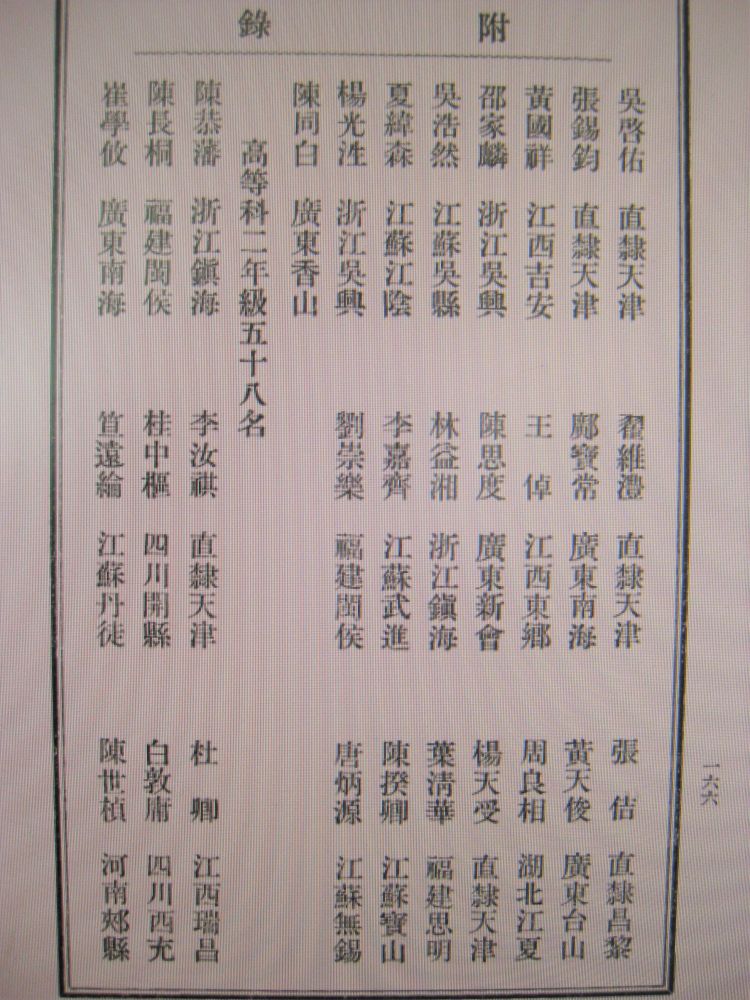 附錄
一六六
吳啓佑 直隸天津 翟維澧 直隸天津 張佶 直隸昌黎
張錫鈞 直隸天津 鄺寶常 廣東南海 黃天俊 廣東台山
黃國祥 江西吉安 王倬 江西東鄉 周良相 湖北江夏
邵家麟 浙江吳興 陳思度 廣東新會 楊天受 直隸天津
吳浩然 江蘇吳縣 林益湘 浙江鎭海 葉淸華 福建思明
夏緯森 江蘇江陰 李嘉齊 江蘇武進 陳揆卿 江蘇寶山
楊光泩 浙江吳興 劉崇樂 福建閩侯 唐炳源 江蘇無錫
陳同白 廣東香山
高等科二年級五十八名
陳恭藩 浙江鎭海 李汝祺 直隸天津 杜卿 江西瑞昌
陳長桐 福建閩侯 桂中樞 四川開縣 白敦庸 四川西充
崔學攸 廣東南海 笪遠綸 江蘇丹徒 陳世楨 河南郟縣